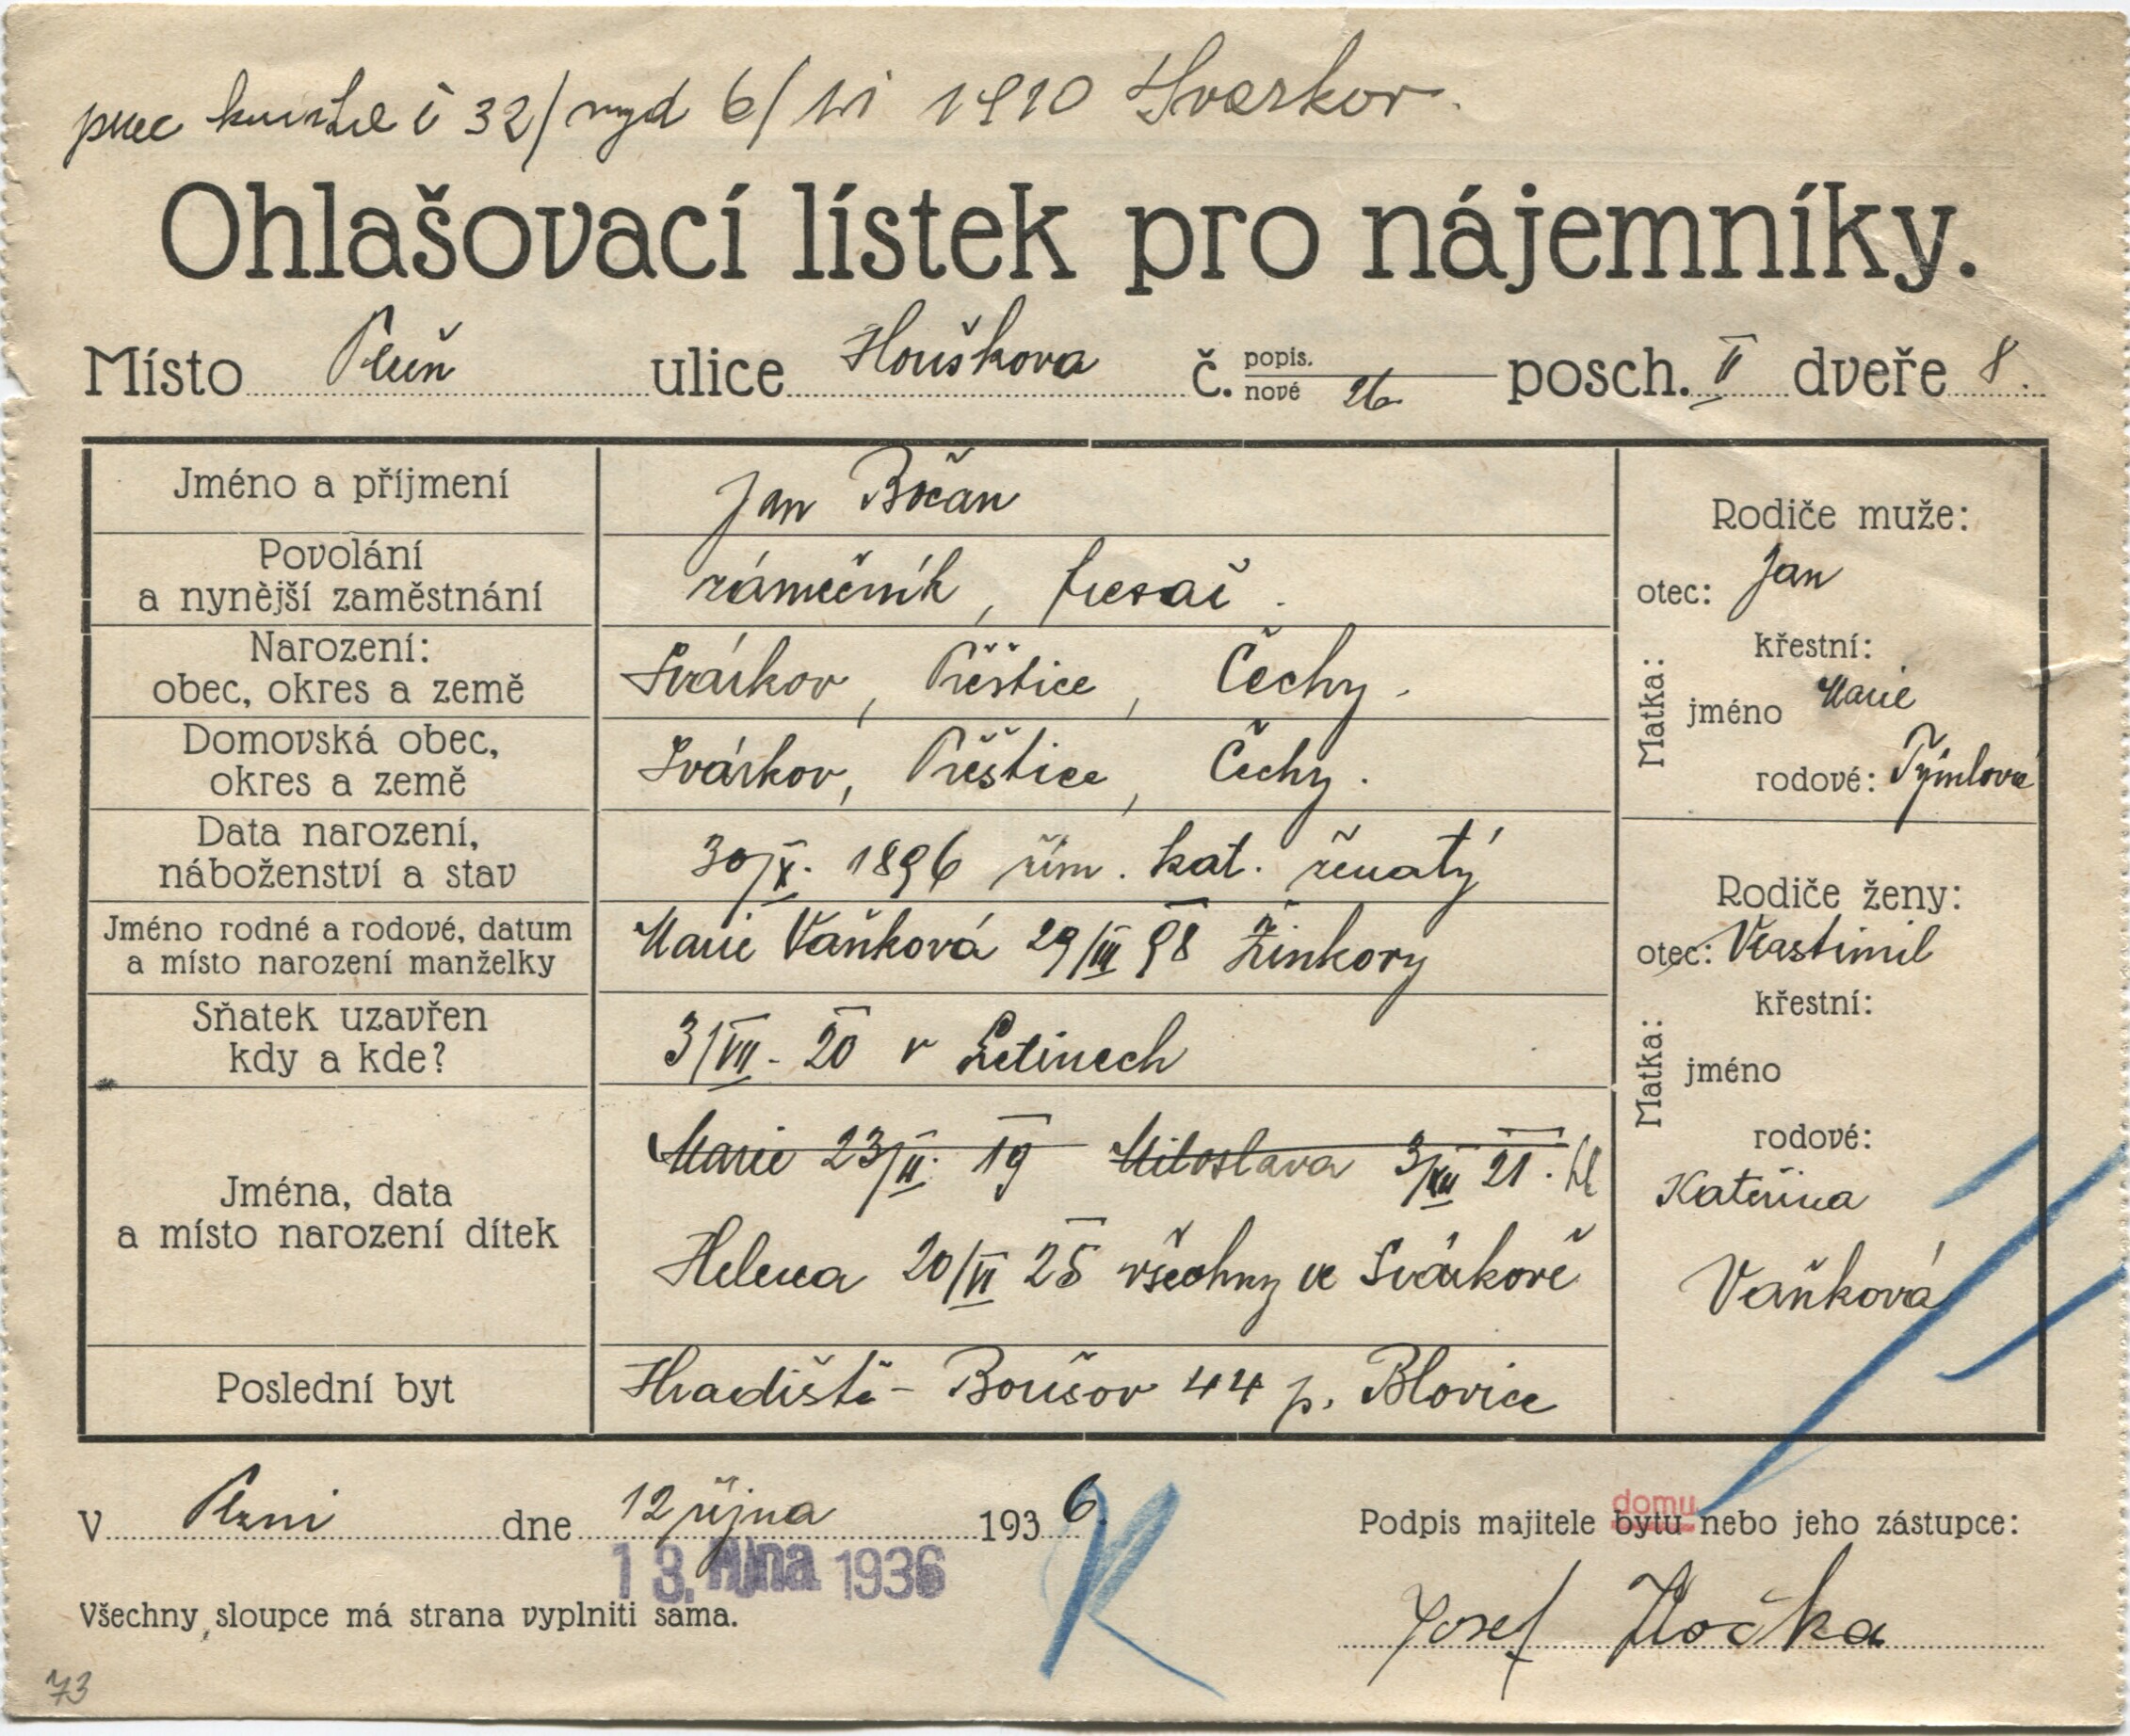 prac knížka č 32/vyd 6/VI 1910 Svarkov.
Ohlašovací lístek pro nájemníky.
Místo Plzeň ulice Houškova Č. popis. nové 26 posch. II dveře 8.
Jméno a příjmení Jan Bočan
Povolání a nynější zaměstnání zámečník, fresař.
Narození: obec, okres a země Svárkov, Přeštice, Čechy.
Domovská obec, okres a země Svárkov, Přeštice, Čechy.
Data narození, náboženství a stav 30/X. 1896 řím. kat. ženatý
Jméno rodné a rodové, datum a místo narození manželky Marie Vaňková 29/III 98 Žinkovy
Sňatek uzavřen kdy a kde? 3/VII - 20 v Letinech
Jména, data a místo narození dítek Marie 23/II. 19 Miloslava 3/XII 21.
Helena 20/VI 25 všechny ve Svárkově
Poslední byt Hradiště - Boušov 44 p. Blovice
Rodiče muže:
otec: Jan
Matka:
křestní:
jméno Marie
rodové: Týmlová
Rodiče ženy:
otec: Vlastimil
Matka:
křestní:
jméno
rodové:
Kateřina
Vaňková
V Plzni dne 12 října 1936.
13. října 1936
domu
Podpis majitele bytu nebo jeho zástupce:
Všechny sloupce má strana vyplniti sama.
Josef
73